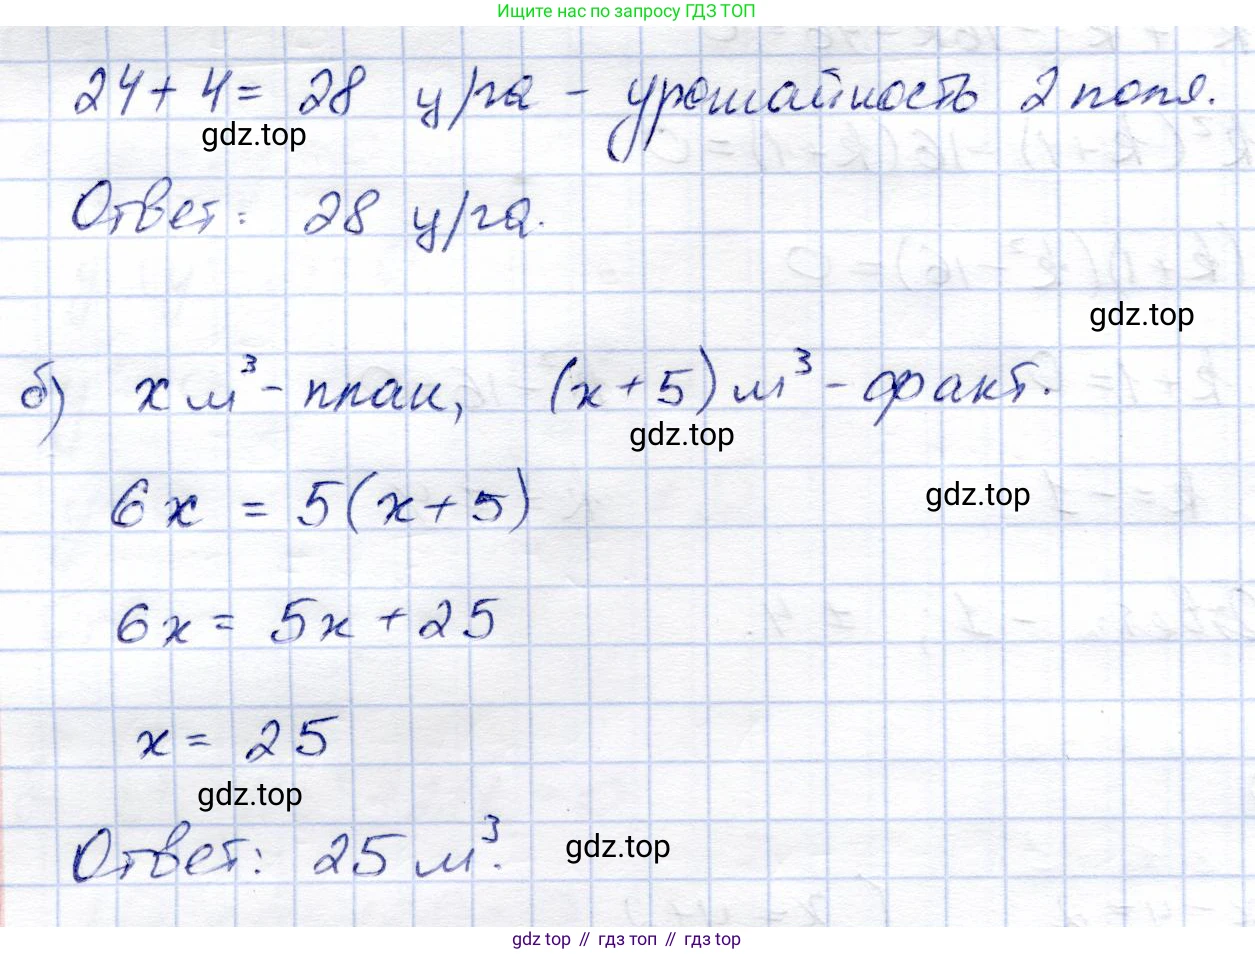 Ищите нас по запросу ГДЗ ТОП
24 + 4 = 28 ц/га - урошайность 2 поля.
gdz.top
Ответ: 28 ц/га.
gdz.top
б) х м³ - план, (х + 5) м³ - факт.
gdz.top
6х = 5(х + 5)
gdz.top
6х = 5х + 25
х = 25
gdz.top
Ответ: 25 м³.
gdz.top
gdz top // гдз топ // gdz.top